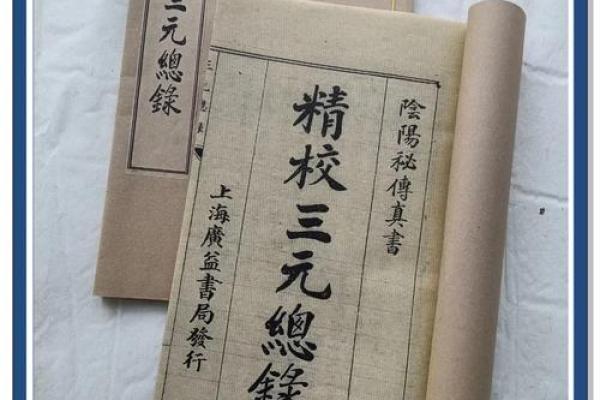 三元總錄
陰陽秘傳真書
精校三元總錄
上海廣益書局發行
三元總錄